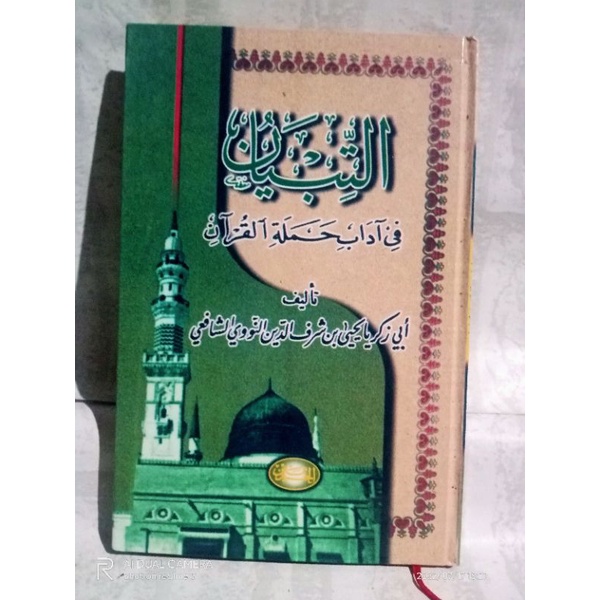 التِّبْيَانُ
فِي آدَابِ حَمَلَةِ الْقُرْآنِ
تأليف
أبي زكريا يحيى بن شرف الدين النووي الشافعي
DUAL CAMERA